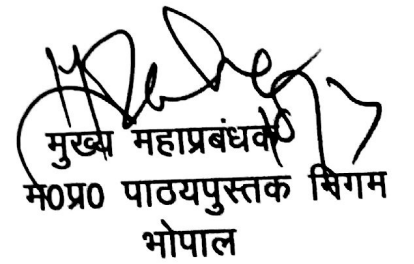 मुख्य महाप्रबंधक
म0प्र0 पाठयपुस्तक निगम
भोपाल